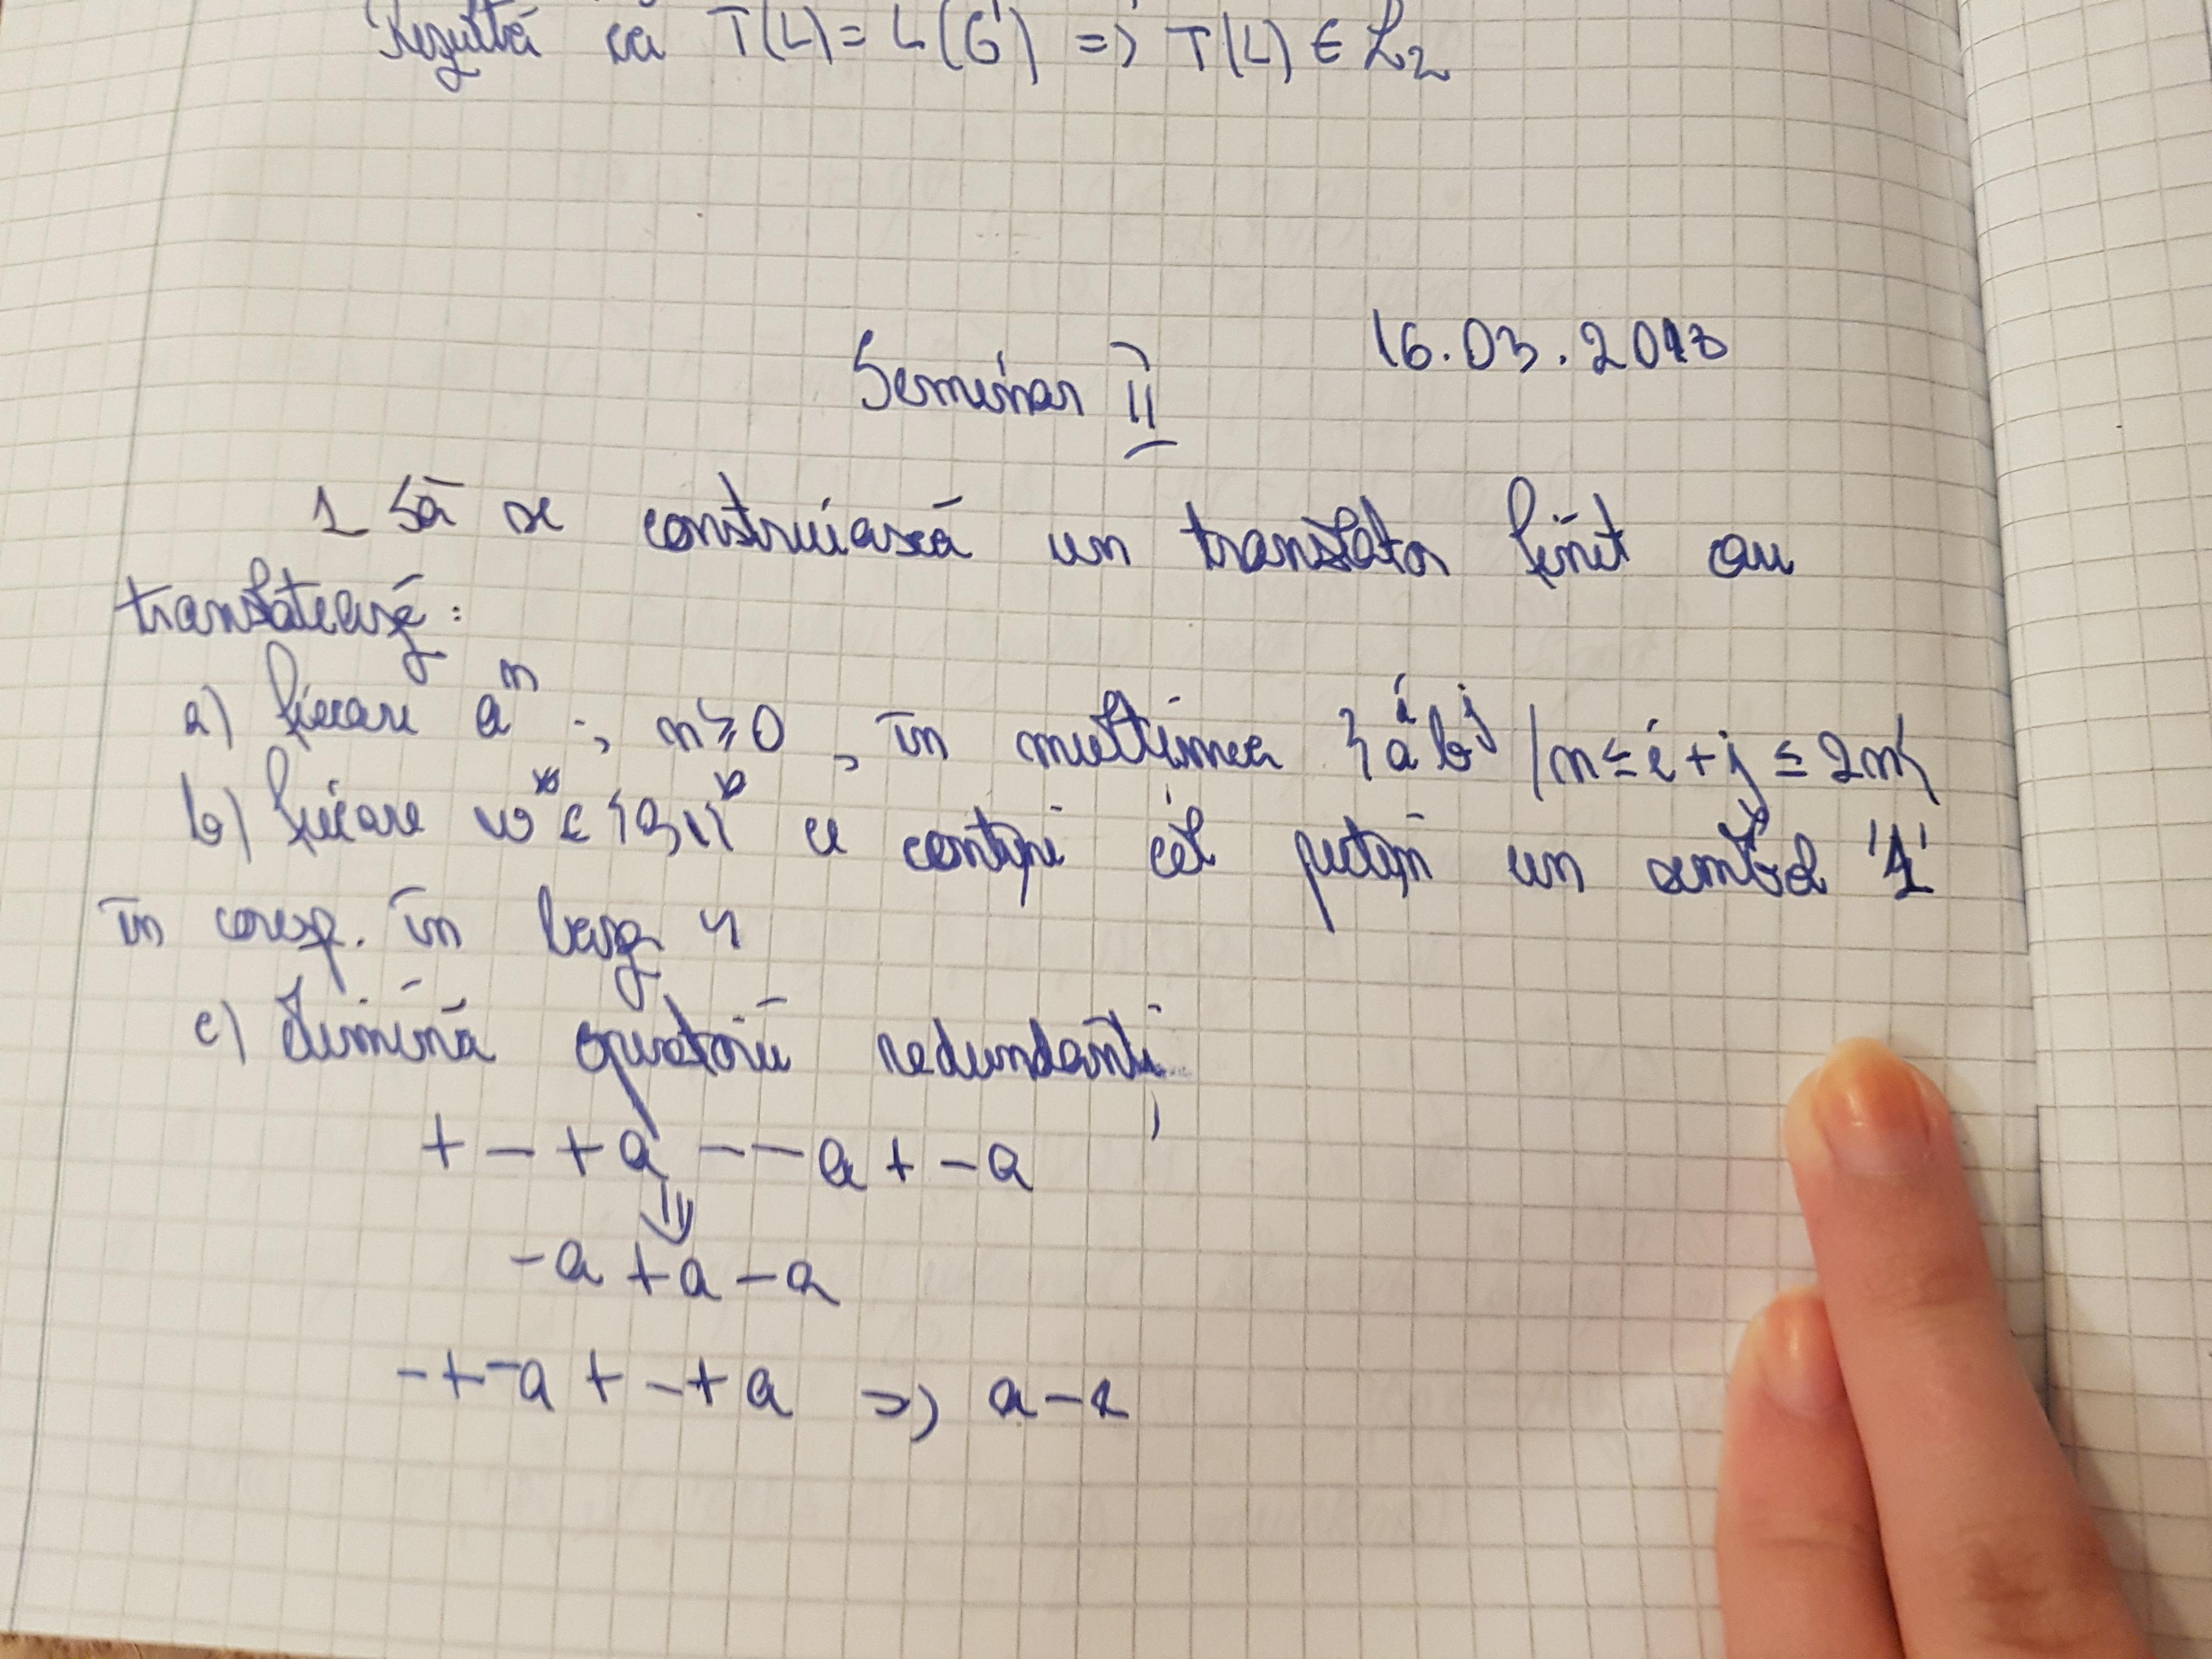 Rezultă că T(L) = L(G') => T(L) ∈ L₂
16.03.2018
Seminar II
1 Să se construiască un translator finit au
translatează:
a) fiecare aⁿ ; n ≥ 0, în mulțimea {aⁱbʲ / n ≤ i + j ≤ 2n}
b) fiecare w* ∈ {0,1}* ce conține cel puțin un simbol '1'
în coresp. în baza 4
c) Elimină operatorii redundanți
+ - + a - - a + - a
⇓
- a + a - a
- + - a + - + a => a - a